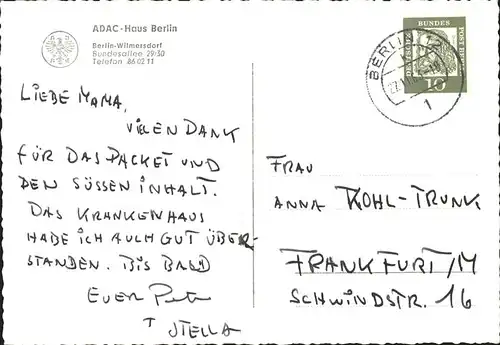 ADAC-Haus Berlin
Berlin-Wilmersdorf
Bundesallee 29/30
Telefon 86 02 11
LIEBE MAMA,
VIELEN DANK
FÜR DAS PACKET UND
DEN SÜSSEN INHALT.
DAS KRANKENHAUS
HABE ICH AUCH GUT ÜBER-
STANDEN. BIS BALD
EUER
STELLA
DEUTSCHE BUNDESPOST BERLIN
10
BERLIN
1
FRAU
ANNA KOHL-TRUNK
FRANKFURT/M
SCHWINDSTR. 16